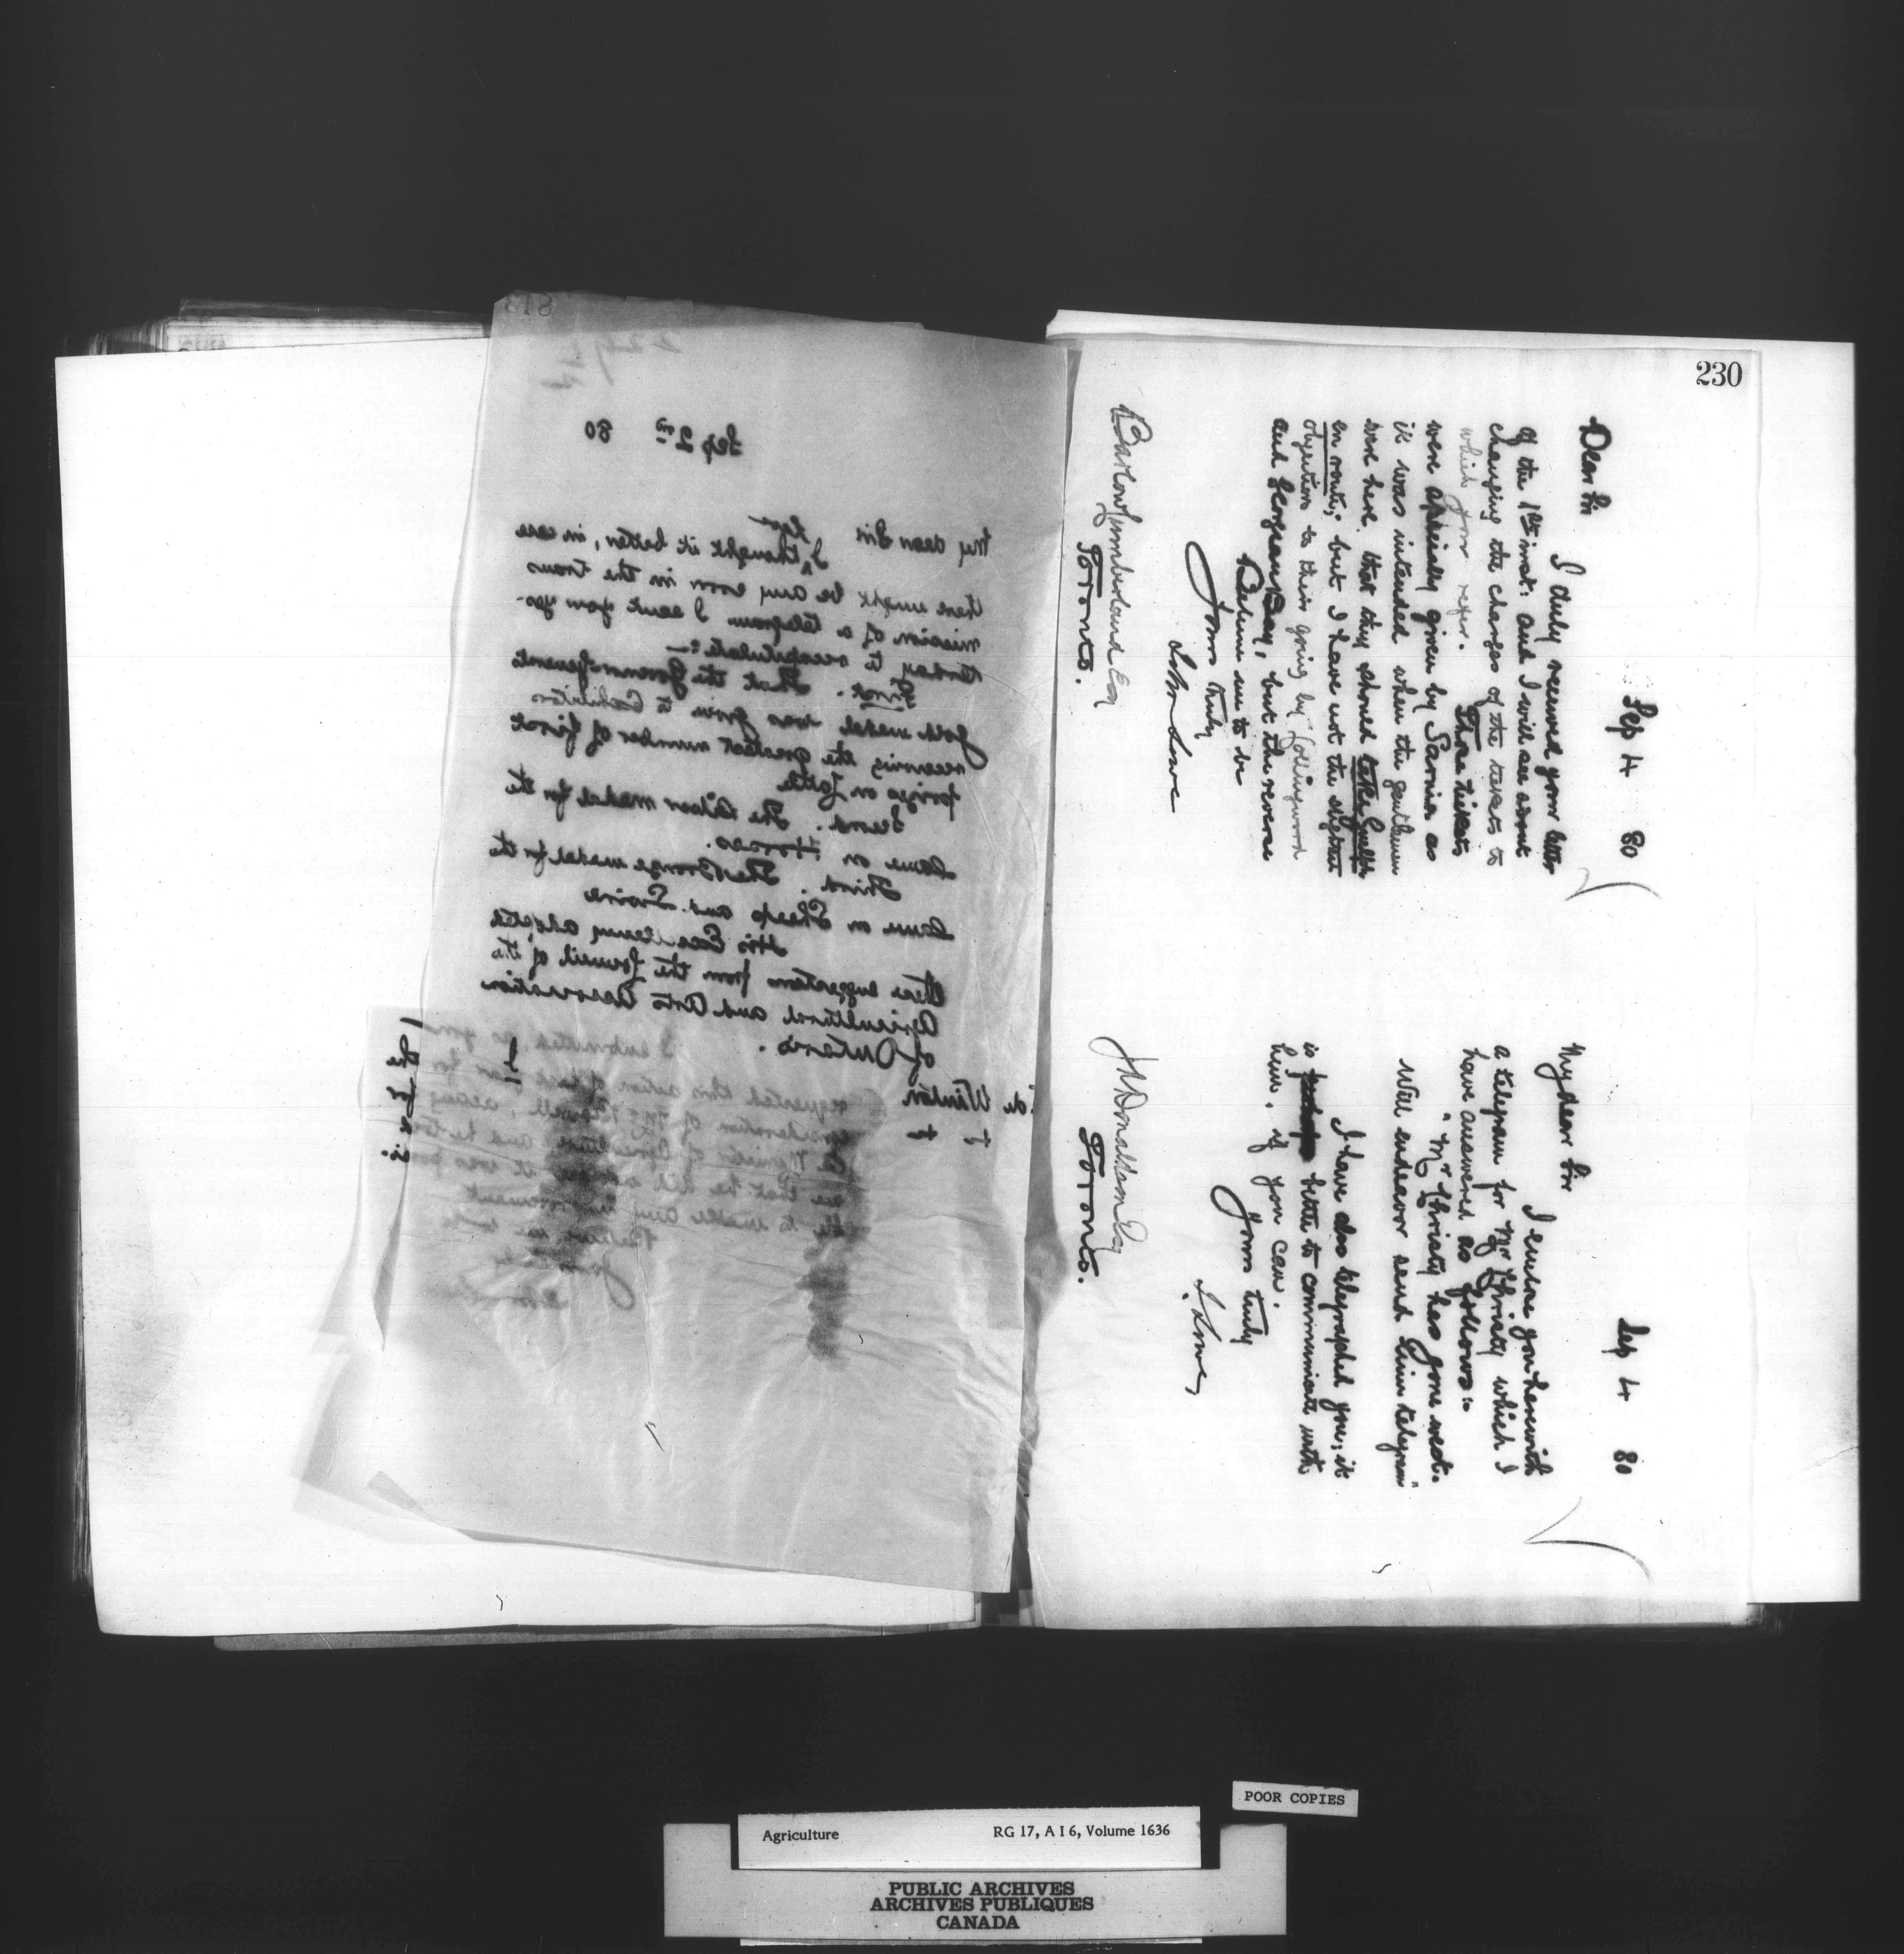 Sep 2nd 80
My dear Sir
I thought it better, in case
there might be any error in the trans
mission of a telegram I sent you yes-
terday to recapitulate:—
First. That the Governor General's
gold medal was given to Exhibitors
receiving the greatest number of first
prizes on Cattle
Second. The Silver medal for the
same on Horses.
Third. The Bronze medal for the
same on Sheep and Swine
His Excellency adopted
these suggestions from the Council of the
Agricultural and Arts Association
of Ontario.
de Winton
I submitted, as you
requested this action
consideration of
Minister of Agriculture
me that he did
to make any
Believe me to be
230
Sep 4 80
Dear Sir
I duly received your letter
of the 1st inst. and I will see about
changing the charges of the tickets to
which you refer.
These tickets
were specially given by Sarnia as
it was intended when the gentlemen
were here that they should take Guelph
en route; but I have not the slightest
objection to their going by Collingwood
and Georgian Bay, but the reverse
Believe me to be
Yours truly
John Lowe
Barlow Cumberland Esq
Toronto.
Sep 4 80
My dear Sir
I enclose you herewith
a telegram for Mr Christy which I
have answered as follows:-
"Mr Christy has gone west.
Will endeavor send him telegram"
I have also telegraphed you; it
is better to communicate with
him, if you can.
Yours truly
J. Lowe
J A Donaldson Esq
Toronto.
POOR COPIES
Agriculture RG 17, A I 6, Volume 1636
PUBLIC ARCHIVES
ARCHIVES PUBLIQUES
CANADA